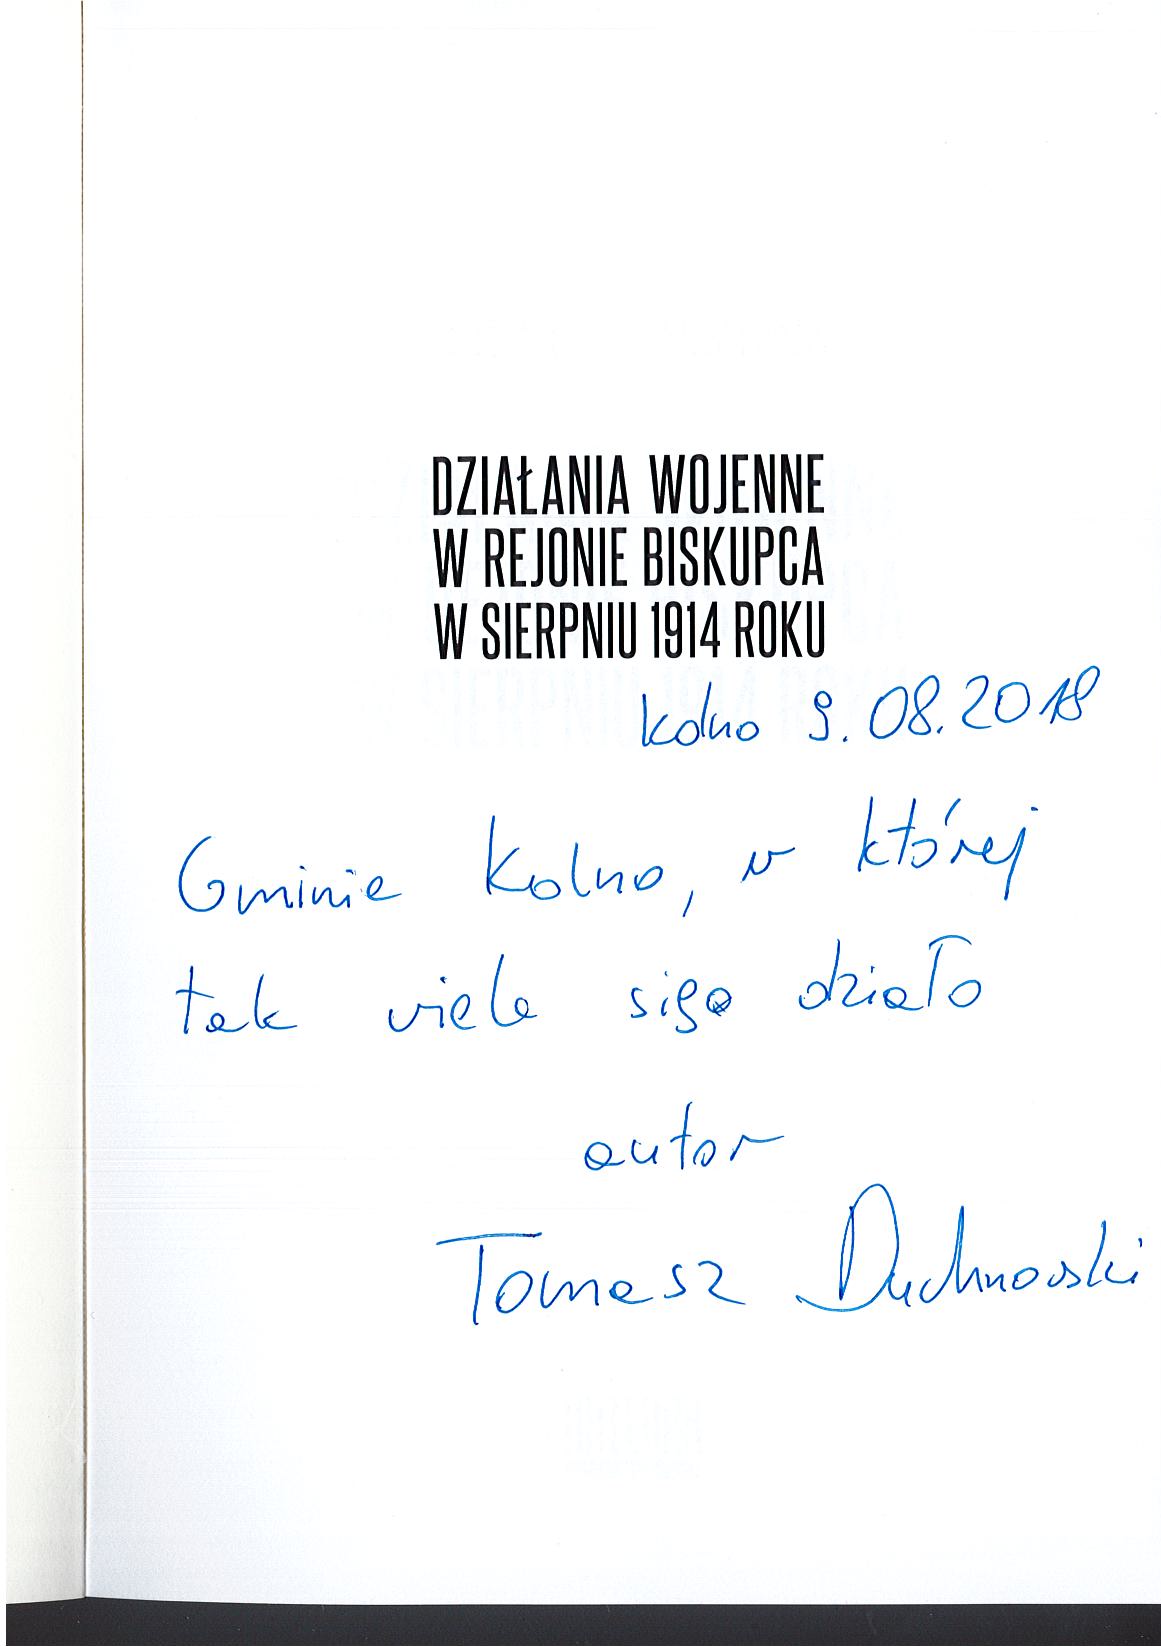 DZIAŁANIA WOJENNE
W REJONIE BISKUPCA
W SIERPNIU 1914 ROKU
Kolno 9.08.2018
Gminie Kolno, w której
tak wiele się działo
autor
Tomasz Duchnowski